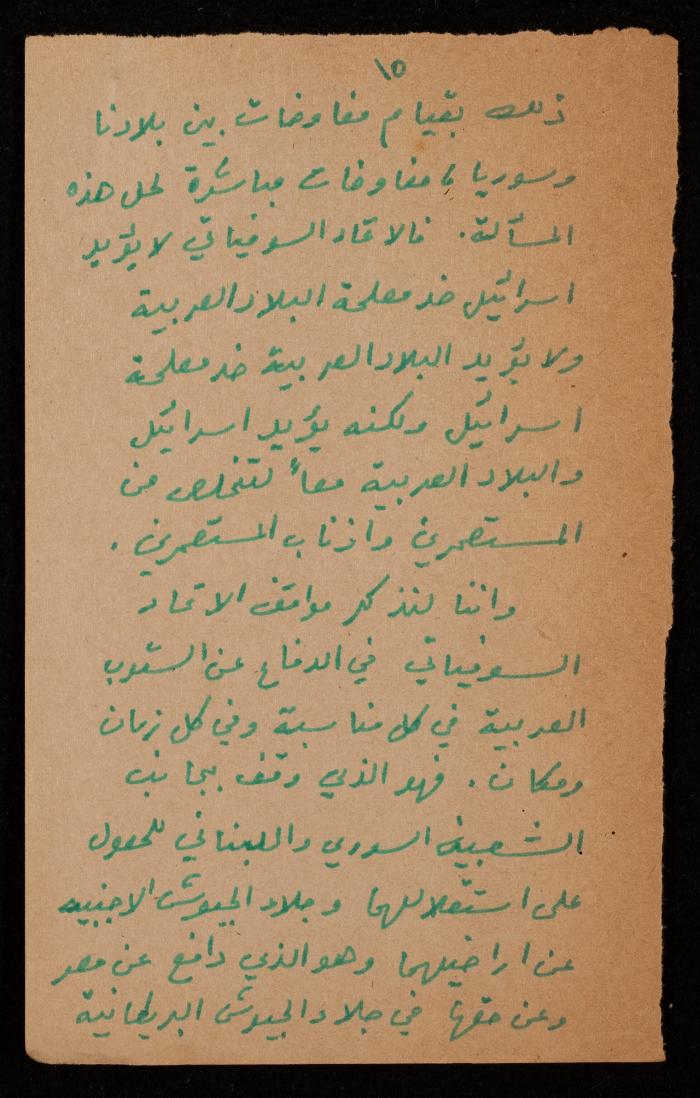 ١٥
ذلك بقيام مفاوضات بين بلادنا
وسوريا، مفاوضات مباشرة لحل هذه
المسألة. فالاتحاد السوفياتي لا يؤيد
اسرائيل ضد مصلحة البلاد العربية
ولا يؤيد البلاد العربية ضد مصلحة
اسرائيل ولكنه يؤيد اسرائيل
والبلاد العربية معاً لتتخلص من
المستعمرين واذناب المستعمرين.
واننا لنذكر مواقف الاتحاد
السوفياتي في الدفاع عن الشعوب
العربية في كل مناسبة وفي كل زمان
ومكان. فهو الذي وقف بجانب
الشعبين السوري واللبناني للحصول
على استقلالهما وجلاء الجيوش الاجنبيه
عن اراضيهما وهو الذي دافع عن مصر
وعن حقها في جلاء الجيوش البريطانية